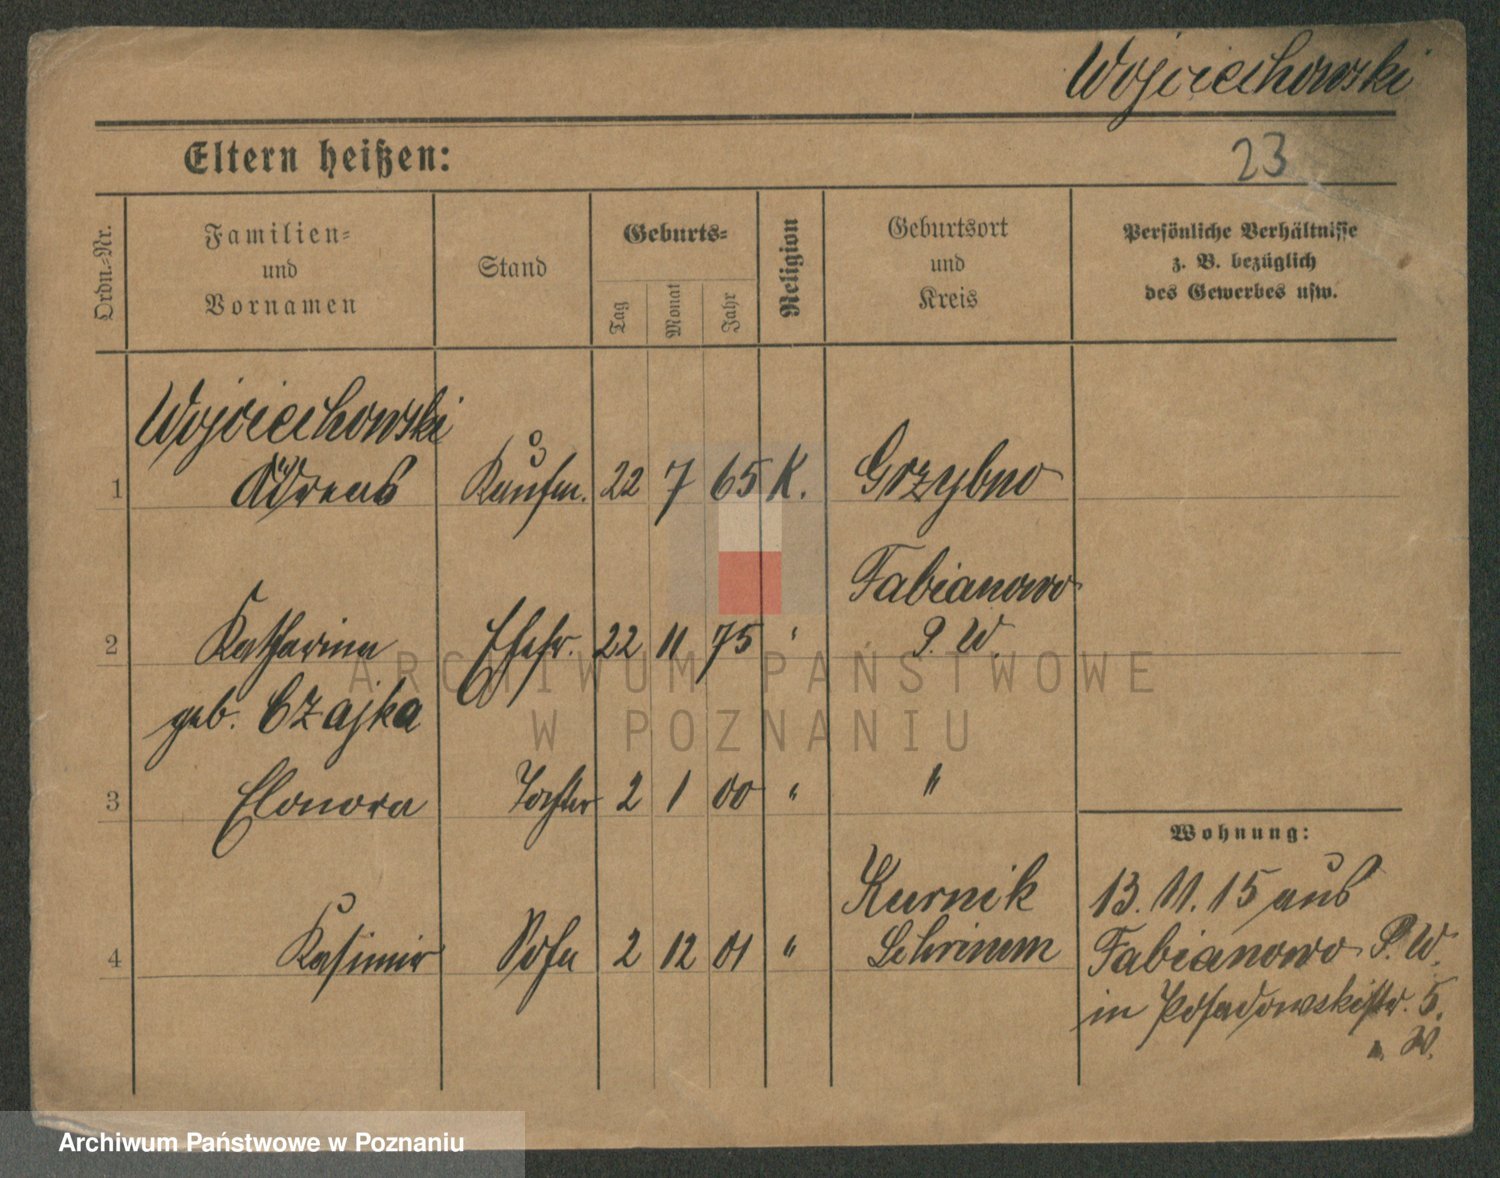 Wojciechowski
Eltern heißen:
23
Ordn.-Nr.
Familien-
und
Vornamen
Stand
Geburts-
Tag
Monat
Jahr
Religion
Geburtsort
und
Kreis
Persönliche Verhältnisse
z. B. bezüglich
des Gewerbes usw.
Wojciechowski
1 Andreas Kaufm. 22 7 65 K. Grzybno
Fabianowo
2 Katharina Ehefr. 22 11 75 " P. W.
geb. Czajka
3 Elonora Tochter 2 1 00 " "
Wohnung:
Kurnik
13. 11. 15 aus
4 Kasimir Sohn 2 12 01 " Schrimm
Fabianowo P. W.
in Posadowskistr. 5.
ARCHIWUM PAŃSTWOWE
W POZNANIU
Archiwum Państwowe w Poznaniu